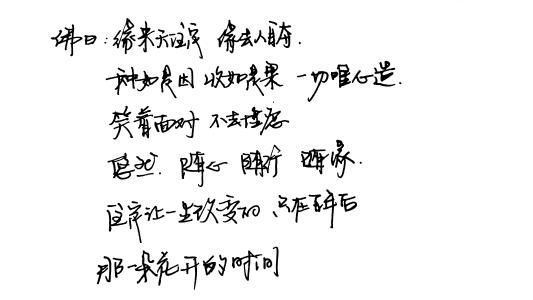 佛曰:缘来天注定 缘去人自夺.
一种如是因 收如是果 一切唯心造.
笑着面对 不去埋怨
悠然. 随心 随行 随缘.
注定让一生改变的 只在百年后
那一朵花开的时间